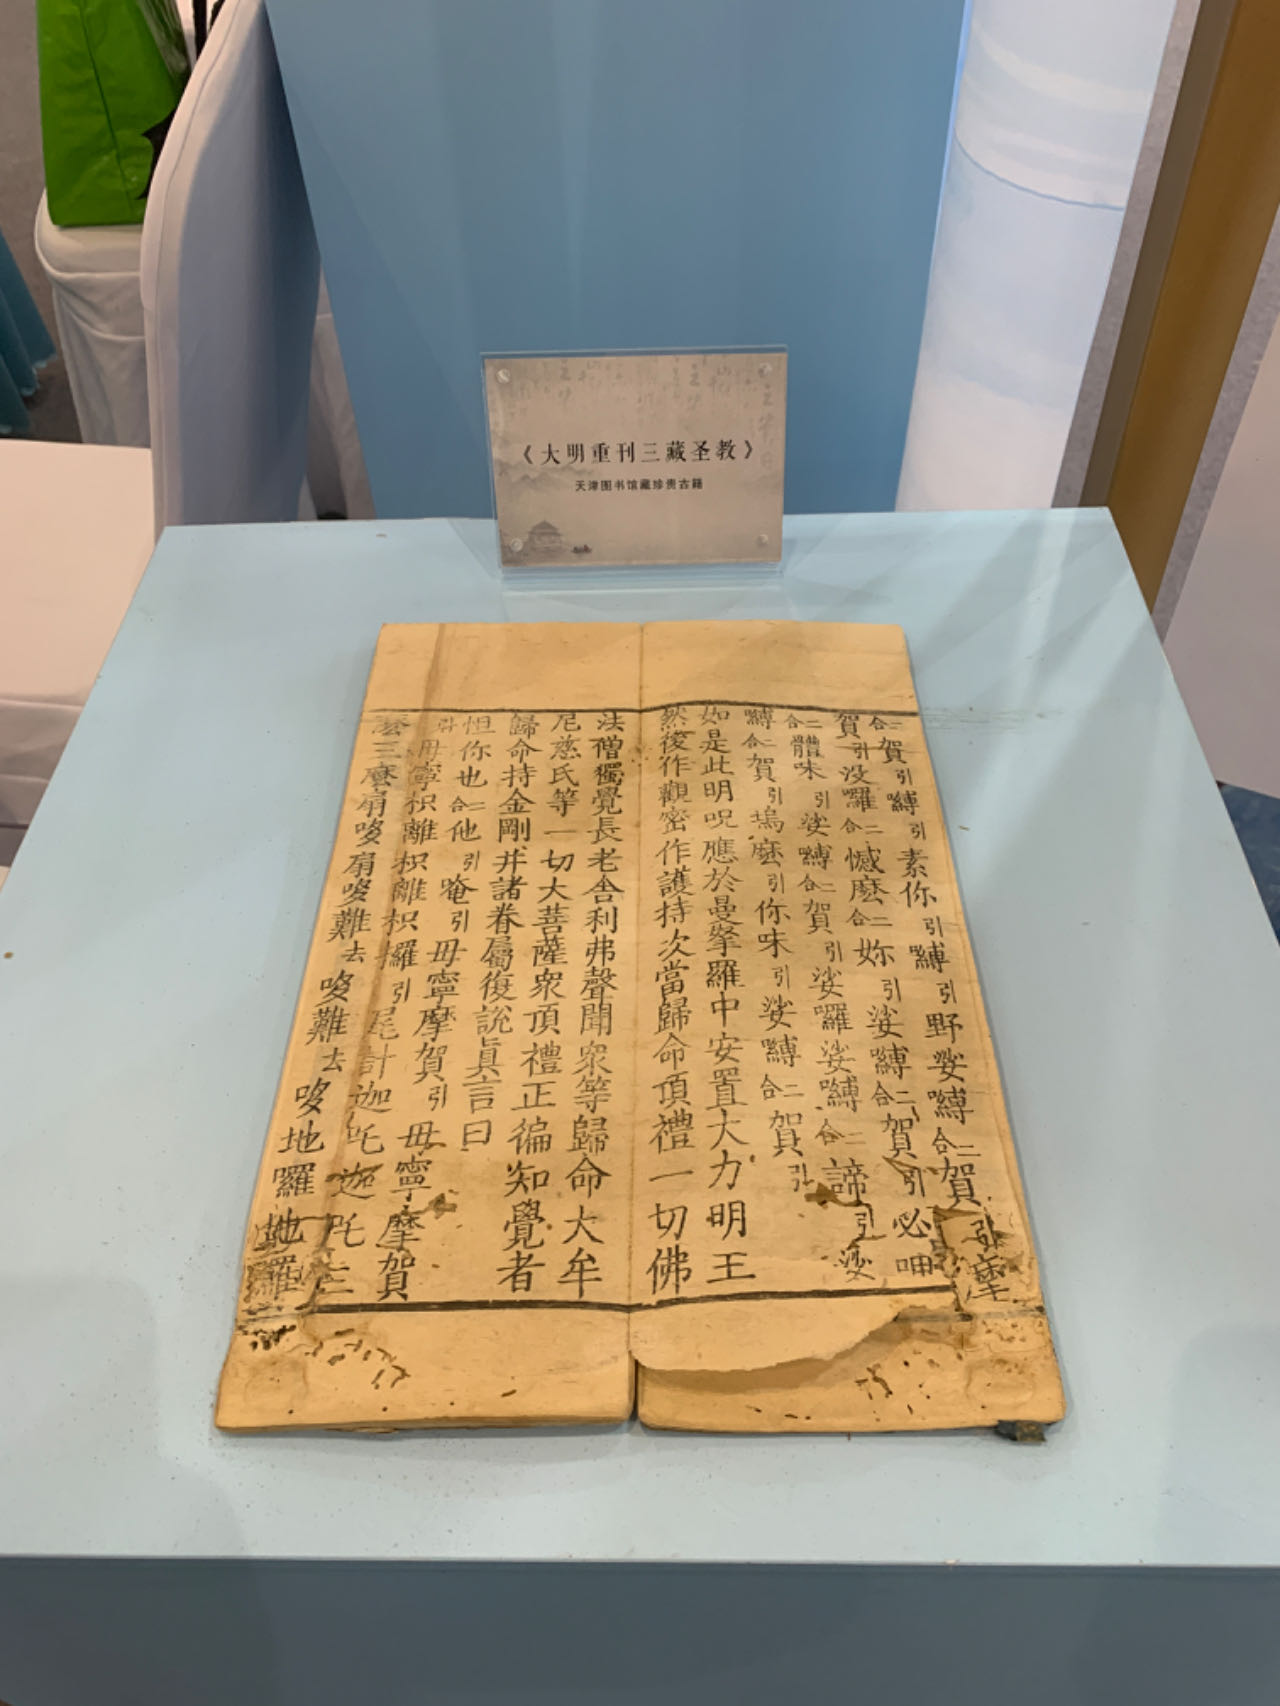 《大明重刊三藏圣教》
天津图书馆藏珍贵古籍
二合賀引嚩引素你引嚩引野娑嚩二合賀引摩
賀引没囉二合憾麼二合妳引娑嚩二合賀引必呬
二合體味引娑嚩二合賀引娑囉娑嚩二合諦引娑
嚩二合賀引塢麼引你味引娑嚩二合賀引
如是此明呪應於曼拏羅中安置大力明王
然後作觀密作護持次當歸命頂禮一切佛
法僧獨覺長老舍利弗聲聞衆等歸命大牟
尼慈氏等一切大菩薩衆頂禮正徧知覺者
歸命持金剛并諸眷屬復說眞言曰
怛你也二合他引唵引毋寧摩賀引毋寧摩賀
引毋寧枳離枳離枳攞引尾計迦吒迦吒三
麼三麼扇哆扇哆難去哆難去哆地囉地囉